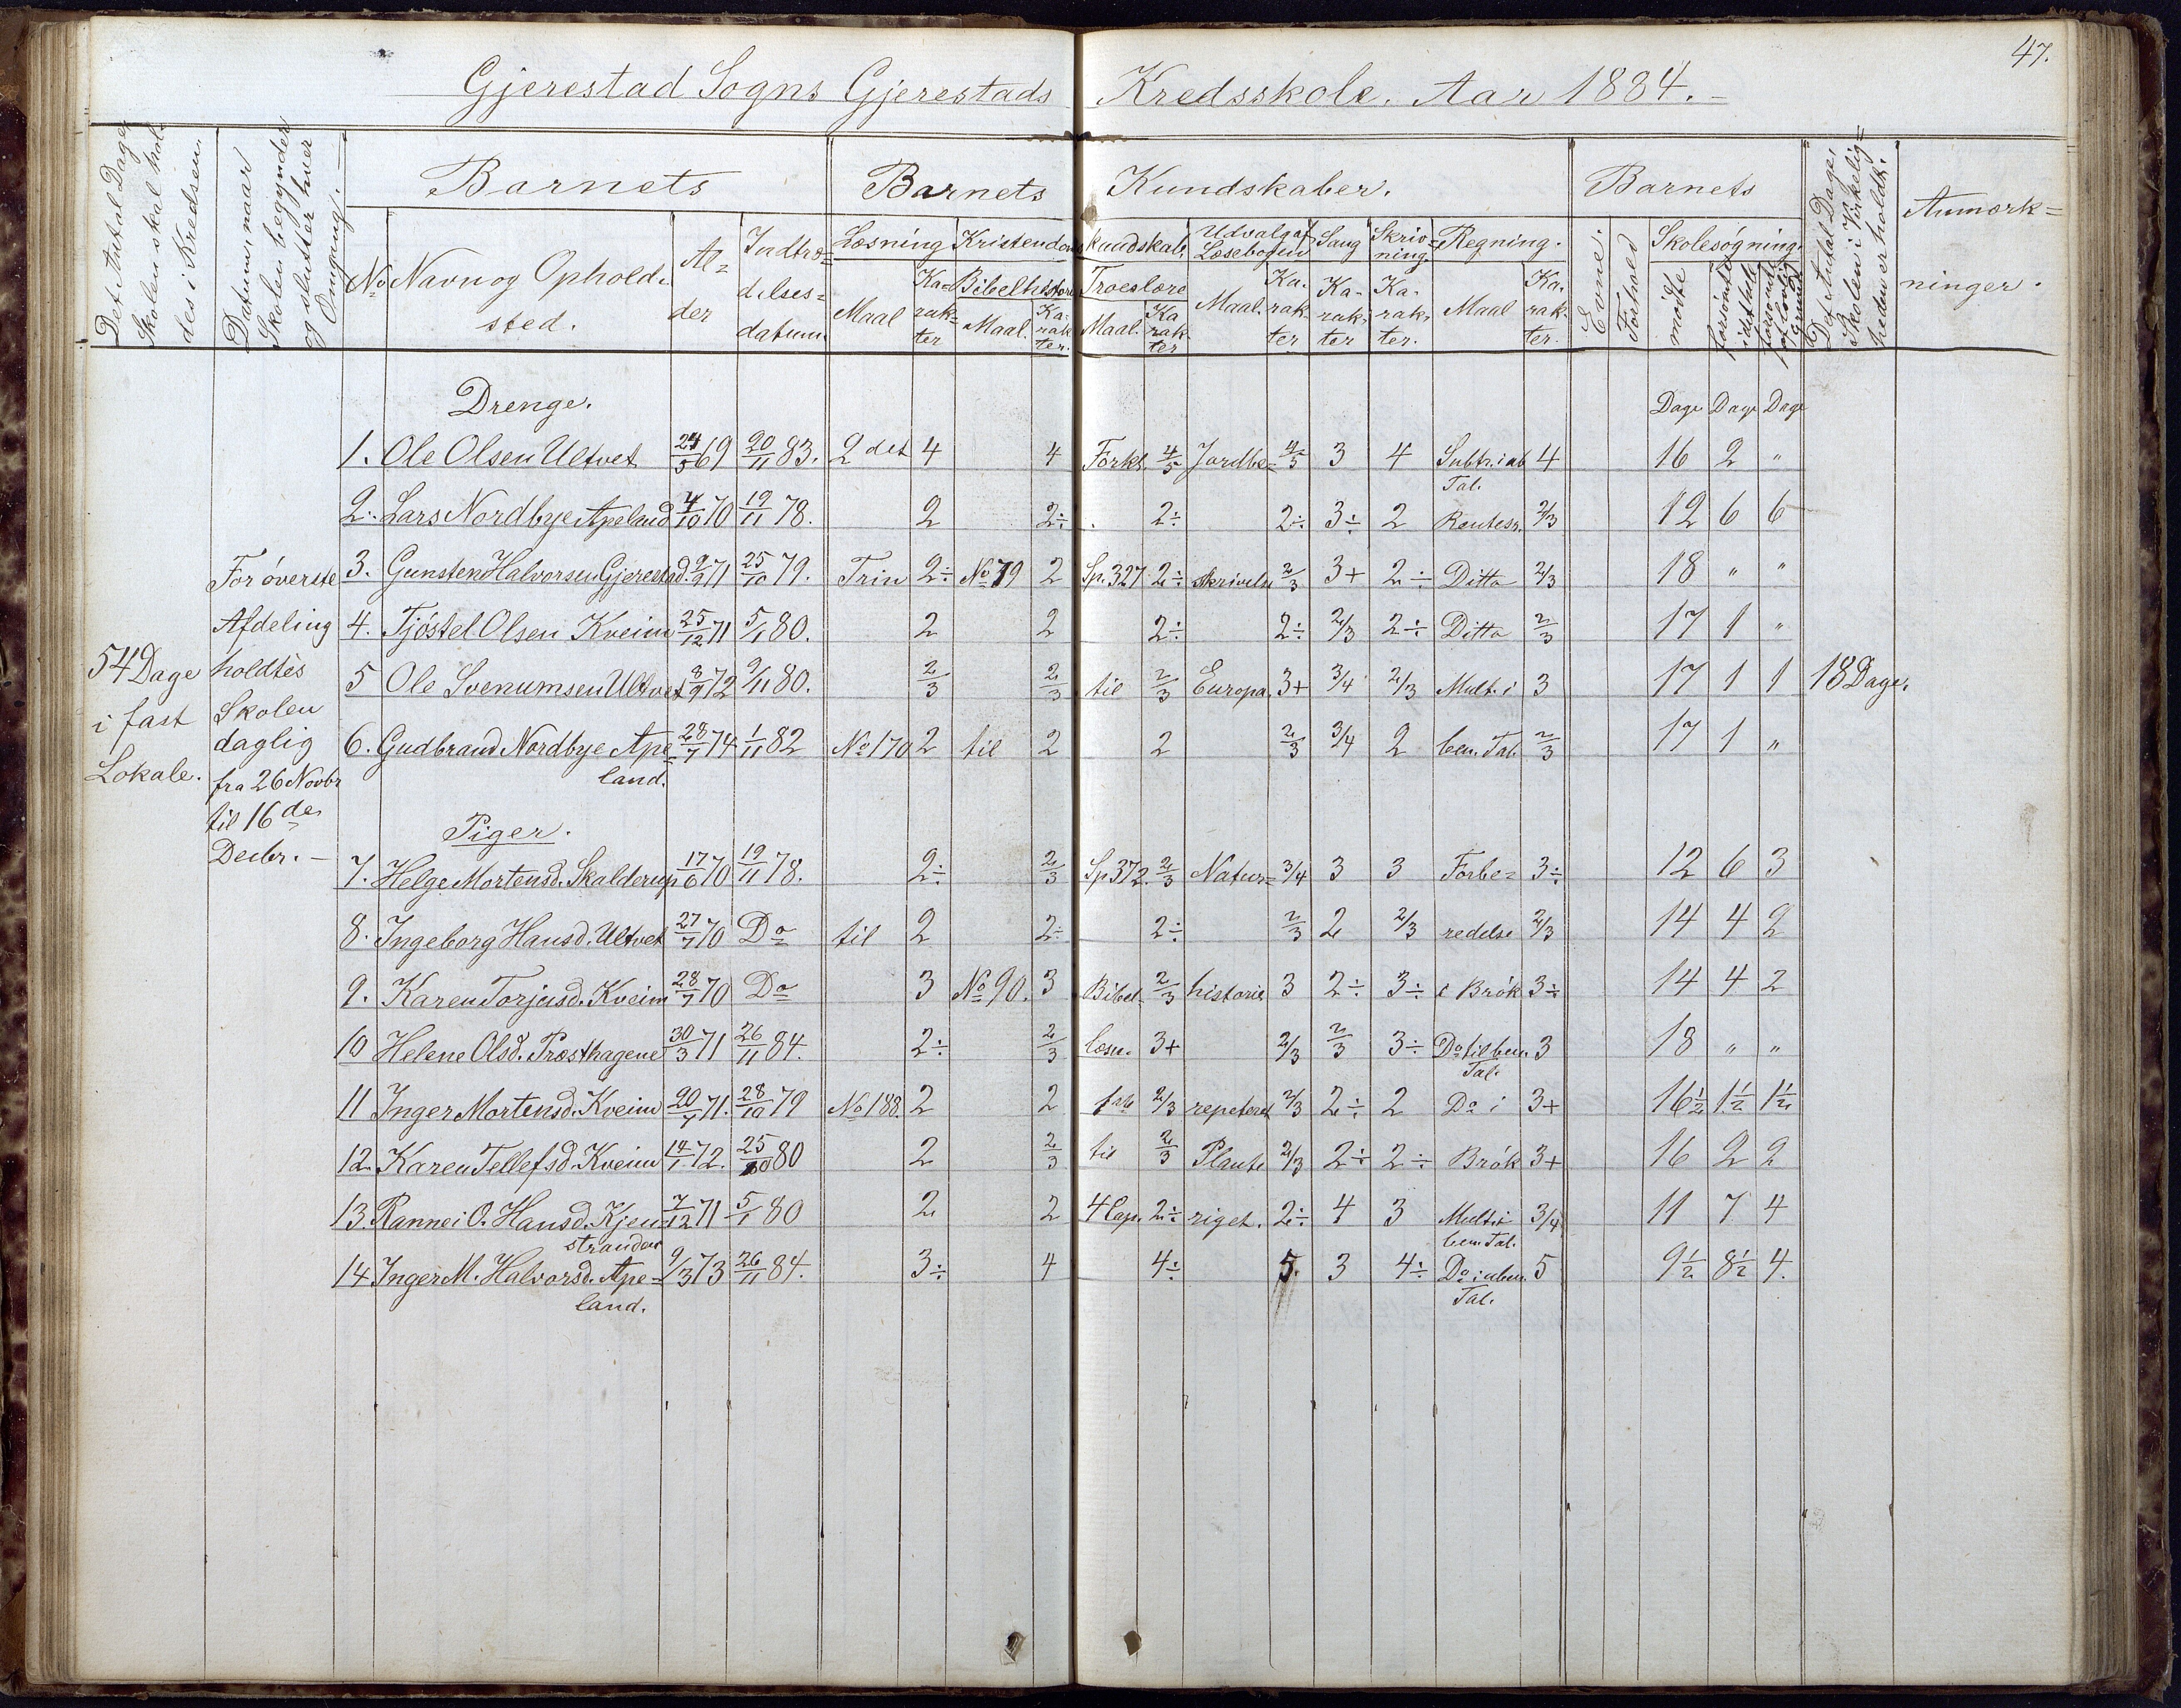 47.
Gjerestad Sogns Gjerestads Kredsskole. Aar 1884.
Det Antal Dage Skolen skal holdes i Kredsen.
Datum, naar Skolen begynder og slutter hver Omgang.
Barnets
No
Navn og Opholdssted.
Alder
Indtrædelsesdatum.
Barnets Kundskaber.
Læsning
Maal
Karakter
Kristendomskundskab.
Bibelhistorie
Maal.
Karakter.
Troeslære
Maal.
Karakter
Udvalg af Læsebogen
Maal.
Karakter
Sang
Karakter
Skrivning.
Karakter.
Regning.
Maal
Karakter.
Barnets
Evne.
Forhold
Skolesøgning.
mødte
forsømte i det hele
forsømte af lovlig Grund
Det Antal Dage, Skolen i Virkeligheden er holdt.
Anmærkninger.
54 Dage i fast Lokale.
For øverste Afdeling holdtes Skolen daglig fra 26 Novbr til 16de Decbr. —
Drenge. Dage Dage Dage
1. Ole Olsen Ultvet 24/5 69 20/11 83. 2det 4 4 Forkl. 4/5 Jordbe= 4/5 3 4 Subtr. i ub Tal. 4 16 2 "
2. Lars Nordbye Apeland 4/10 70 19/11 78. 2 2÷ 2÷ 2÷ 3÷ 2 Rentesr. 2/3 12 6 6
3. Gunsten Halvorsen Gjerestad. 9/9 71 25/10 79. Trin 2÷ No 79 2 Sp. 327 2÷ skrivelse 2/3 3+ 2÷ Ditto 2/3 18 " "
4. Tjøstel Olsen Kveim 25/12 71 5/1 80. 2 2 2÷ 2÷ 2/3 2÷ Ditto 2/3 17 1 "
5 Ole Svenumsen Ultvet 8/9 72 9/11 80. 2/3 2/3 til 2/3 Europa. 3+ 3/4 2/3 Mult. i 3 17 1 1 18 Dage.
6. Gudbrand Nordbye Apeland. 28/7 74 1/11 82 No 170 2 til 2 2 2/3 3/4 2 ben. Tal. 2/3 17 1 "
Piger.
7. Helge Mortensd. Skalderup 17/6 70 19/11 78. 2÷ 2/3 Sp 372. 2/3 Natur= 3/4 3 3 Forbe= 3÷ 12 6 3
8. Ingeborg Hansd. Ultvet 27/7 70 Do til 2 2÷ 2÷ 2/3 2 2/3 redelse 2/3 14 4 2
9. Karen Torjusd. Kveim 28/7 70 Do 3 No 90. 3 Bibel 2/3 historie 3 2÷ 3÷ i Brøk 3÷ 14 4 2
10 Helene Olsd. Præsthagene 30/3 71 26/11 84. 2÷ 2/3 læsn. 3+ 2/3 2/3 3÷ Do til ben. Tal. 3 18 " "
11 Inger Mortensd. Kveim 20/7 71. 28/10 79 No 188. 2 2 2/3 repeteret 2/3 2÷ 2 Do i 3+ 16½ 1½ 1½
12. Karen Tellefsd. Kveim 14/1 72. 25/10 80 2 2/3 til 2/3 Plante 2/3 2÷ 2÷ Brøk 3+ 16 2 2
13. Rannei O. Hansd. Kjenstranden 7/12 71 5/1 80 2 2 4 Cap. 2÷ riget. 2÷ 4 3 Mult. i ben. Tal. 3/4 11 7 4
14 Inger M. Halvorsd. Apeland. 9/3 73 26/11 84. 3÷ 4 4÷ 5. 3 4÷ Do i uben. Tal. 5 9½ 8½ 4.